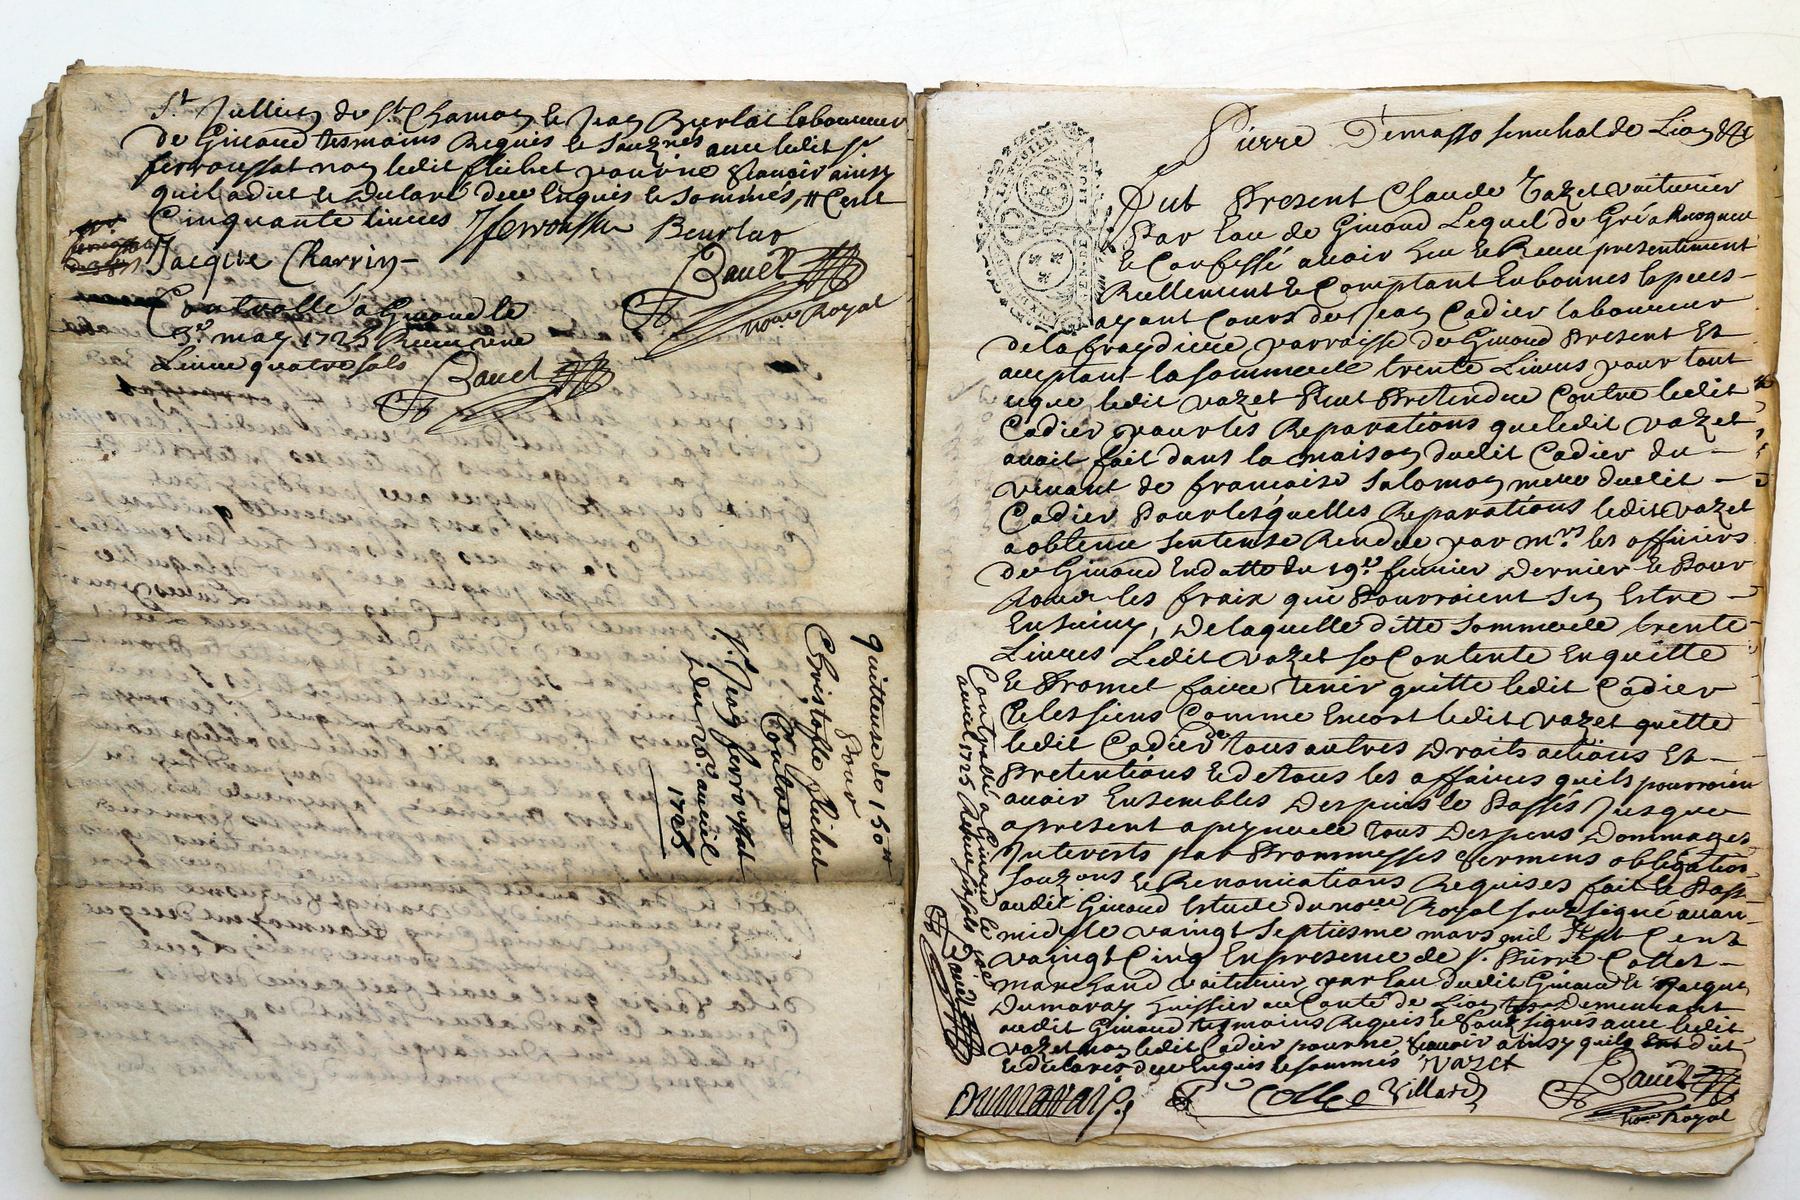 St Jullien de St Chamon et Jean Burlat laboureur
de Givaud tesmoins Requis et souznés avec ledit Sr
ferroussat non ledit flichet pour ne scavoir ainsy
quil a dict et declaré deue Enquis et sommés, # Cent
Cinquante livres Jferroussat Beurlat
Jacque Charrin
Bauet
nore Royal
Controllé à Givaud le
3e may 1725 Receu une
Livre quatre sols
Bauet
quittense de 150 #
pour
Christofle flichet
Contre
Sr. Jean ferroussat
Du 26e avril
1725
Pierre Demasso senechal de Lion &c
Fut Present Claude Vazet voiturier
Par Eau de Givaud Lequel de Gré a Recogneu
et Confessé avoir heu et Receu presentement
Reellement et Comptant En bonnes Especes
ayant Cours de Jean Cadier laboureur
de la fraydiere parroisse de Givaud Present Et
acceptant la somme de trente Livres pour tout
ce que ledit vazet Peut Pretendre Contre ledit
Cadier pour les Reparations que ledit vazet
avoit fait dans la maison dudit Cadier du
venant de francoise Salomon mere dudit
Cadier Pour lesquelles Reparations ledit vazet
a obtenu sentense Rendue par mrs. les officiers
de Givaud En datte du 19e fevrier Dernier et Pour
tous les fraix que Pourroient sen Estre
Ensuivy, De laquelle ditte somme de trente
Livres Ledit vazet se Contente En quitte
et Promet faire tenir quitte ledit Cadier
et les siens Comme Encort ledit vazet quitte
ledit Cadier de tous autres Droits actions Et
Pretentions et de tous les affaires quils pourroient
avoir Ensembles Despuis le Passés Jusque
a present a peyne de tous Despens Dommages
Interests par Prommesses sermens obligations
souzons et Renonciations Requises fait et Passé
audit Givaud Estude du nore Royal souzsigné avant
midy le vaingt Septiesme mars mil Sept Cent
vaingt Cinq En presence de Sr Pierre Collet
marchand voiturier par Eau dudit Givaud et Jacque
Dumaray huissier au Conté de Lion Demeurant
audit Givaud tesmoins Requis et Souzsignés avec ledit
vazet non ledit Cadier pour ne scavoir ainsy quils ont dict
et declarés deue Enquis et sommés Vazet
Dumaray Collet Villard
Bauet
nore Royal
Controllé à Givaud le
avril 1725 Receu six sols
Bauet